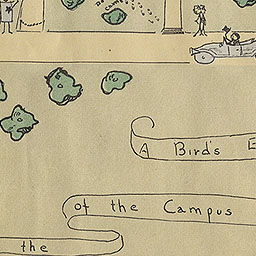 A Bird's E
of the Campus
the